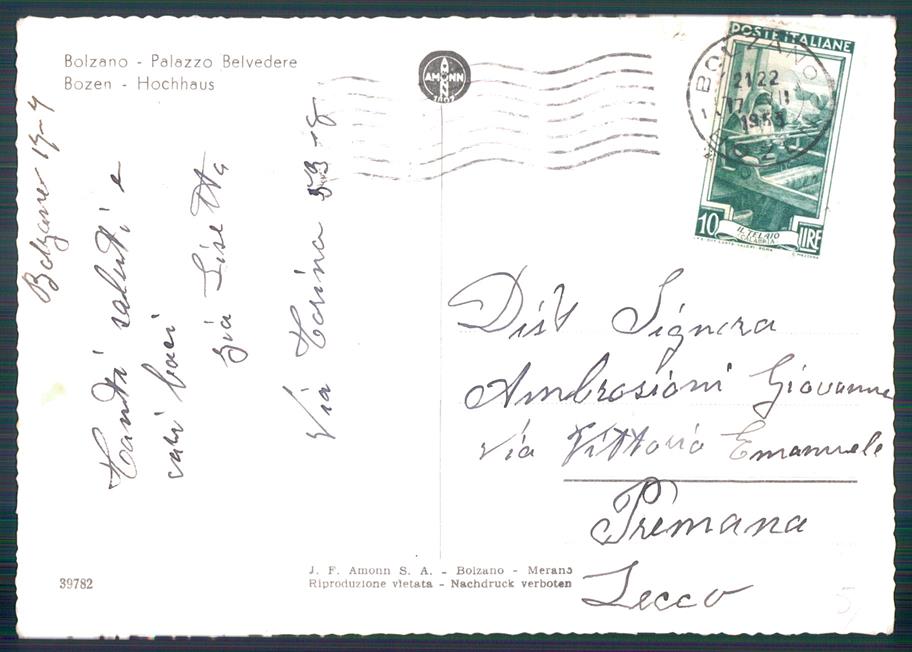 Bolzano - Palazzo Belvedere
Bozen - Hochhaus
AMONN
1802
POSTE ITALIANE
BOLZANO
21-22
17
1955
10
LIRE
IL TELAIO
CALABRIA
Bolzano 17-7
Tanti saluti e
cari baci
zia Lisetta
Via Torino
Dist Signora
Ambrosioni Giovanna
via Vittorio Emanuele
Premana
Lecco
39782
J. F. Amonn S. A. - Bolzano - Merano
Riproduzione vietata - Nachdruck verboten